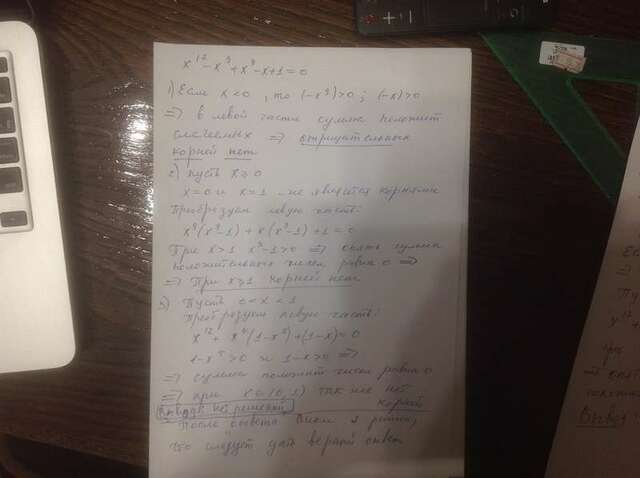 x¹² - x⁹ + x⁴ - x + 1 = 0
1) Если x < 0, то (-x⁹) > 0; (-x) > 0
⇒ в левой части сумма положит
слагаемых ⇒ отрицательных
корней нет
2) Пусть x ≥ 0
x = 0 и x = 1 - не являются корнями
Преобразуем левую часть:
x⁹(x³-1) + x(x³-1) + 1 = 0
При x > 1 x³-1 > 0 ⇒ опять сумма
положительных чисел равна 0 ⇒
⇒ При x ≥ 1 корней нет
3) Пусть 0 < x < 1
Преобразуем левую часть:
x¹² + x⁴(1-x⁵) + (1-x) = 0
1-x⁵ > 0 и 1-x > 0 ⇒
⇒ сумма положит чисел равна 0
⇒ при x ∈ (0, 1) так же нет
корней
Вывод: нет решений
После ответа я решил,
что следует дать верный ответ
Вывод